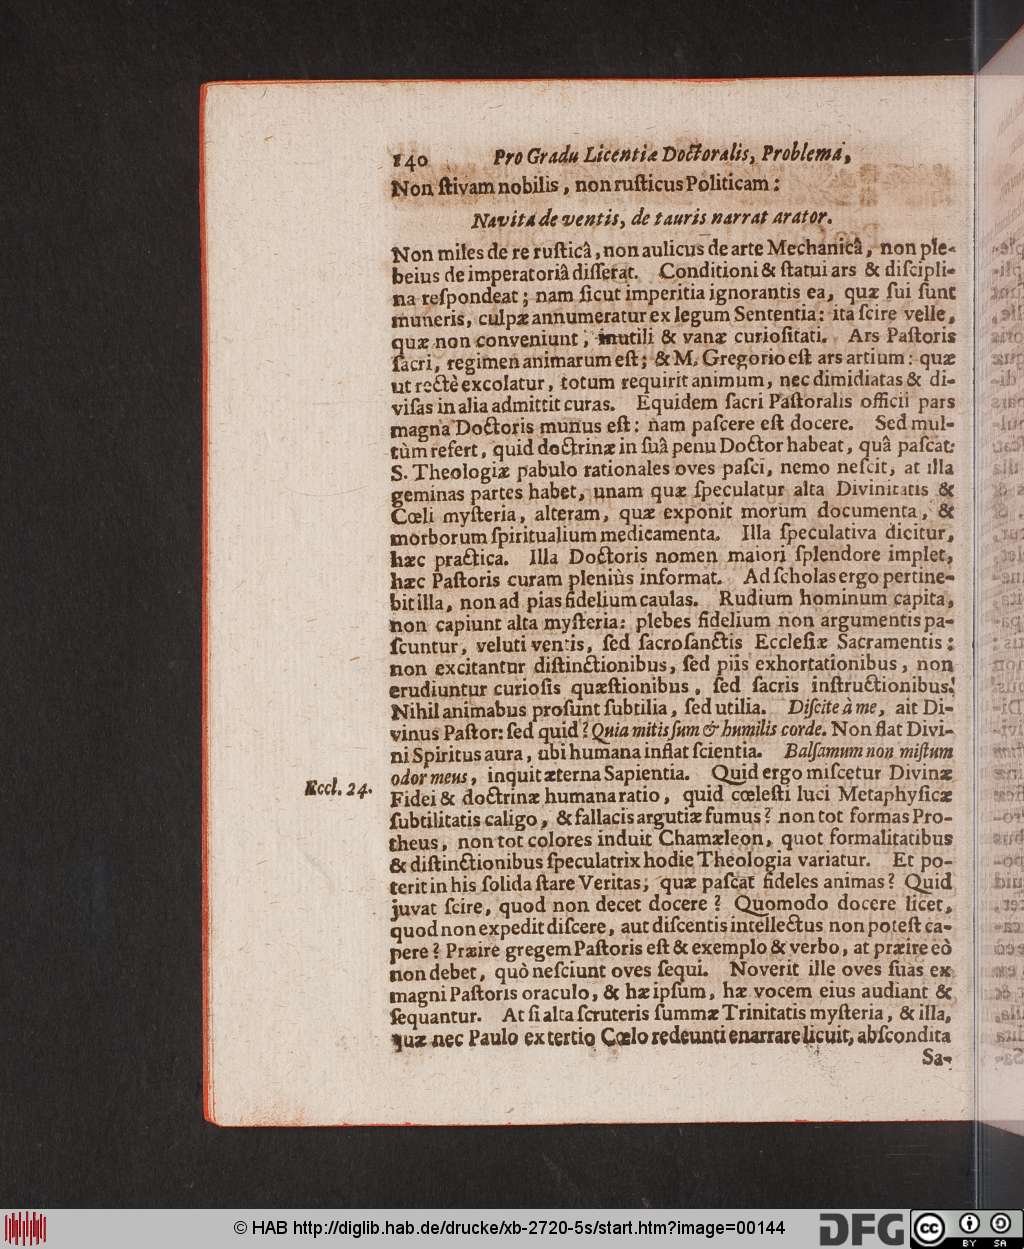 140 Pro Gradu Licentiæ Doctoralis, Problema,
Non ſtivam nobilis, non ruſticus Politicam:
Navita de ventis, de tauris narrat arator.
Non miles de re ruſticâ, non aulicus de arte Mechanicâ, non ple-
beius de imperatoriâ diſſerat. Conditioni & ſtatui ars & diſcipli-
na reſpondeat; nam ſicut imperitia ignorantis ea, quæ ſui ſunt
muneris, culpæ annumeratur ex legum Sententia: ita ſcire velle,
quæ non conveniunt, inutili & vanæ curioſitati. Ars Paſtoris
ſacri, regimen animarum eſt; & M. Gregorio eſt ars artium: quæ
ut rectè excolatur, totum requirit animum, nec dimidiatas & di-
viſas in alia admittit curas. Equidem ſacri Paſtoralis officii pars
magna Doctoris munus eſt: nam paſcere eſt docere. Sed mul-
tùm refert, quid doctrinæ in ſuâ penu Doctor habeat, quâ paſcat:
S. Theologiæ pabulo rationales oves paſci, nemo neſcit, at illa
geminas partes habet, unam quæ ſpeculatur alta Divinitatis &
Cœli myſteria, alteram, quæ exponit morum documenta, &
morborum ſpiritualium medicamenta. Illa ſpeculativa dicitur,
hæc practica. Illa Doctoris nomen maiori ſplendore implet,
hæc Paſtoris curam pleniùs informat. Ad ſcholas ergo pertine-
bit illa, non ad pias fidelium caulas. Rudium hominum capita,
non capiunt alta myſteria: plebes fidelium non argumentis pa-
ſcuntur, veluti ventis, ſed ſacroſanctis Eccleſiæ Sacramentis:
non excitantur diſtinctionibus, ſed piis exhortationibus, non
erudiuntur curioſis quæſtionibus, ſed ſacris inſtructionibus.
Nihil animabus proſunt ſubtilia, ſed utilia. Diſcite à me, ait Di-
vinus Paſtor: ſed quid? Quia mitis ſum & humilis corde. Non flat Divi-
ni Spiritus aura, ubi humana inflat ſcientia. Balſamum non miſtum
odor meus, inquit æterna Sapientia. Quid ergo miſcetur Divinæ
Eccl. 24.
Fidei & doctrinæ humana ratio, quid cœleſti luci Metaphyſicæ
ſubtilitatis caligo, & fallacis argutiæ fumus? non tot formas Pro-
theus, non tot colores induit Chamæleon, quot formalitatibus
& diſtinctionibus ſpeculatrix hodie Theologia variatur. Et po-
terit in his ſolida ſtare Veritas; quæ paſcat fideles animas? Quid
juvat ſcire, quod non decet docere? Quomodo docere licet,
quod non expedit diſcere, aut diſcentis intellectus non poteſt ca-
pere? Præire gregem Paſtoris eſt & exemplo & verbo, at præire eò
non debet, quò neſciunt oves ſequi. Noverit ille oves ſuas ex
magni Paſtoris oraculo, & hæ ipſum, hæ vocem eius audiant &
ſequantur. At ſi alta ſcruteris ſummæ Trinitatis myſteria, & illa,
quæ nec Paulo ex tertio Cœlo redeunti enarrare licuit, abſcondita
Sa-
© HAB http://diglib.hab.de/drucke/xb-2720-5s/start.htm?image=00144
DFG
cc BY SA